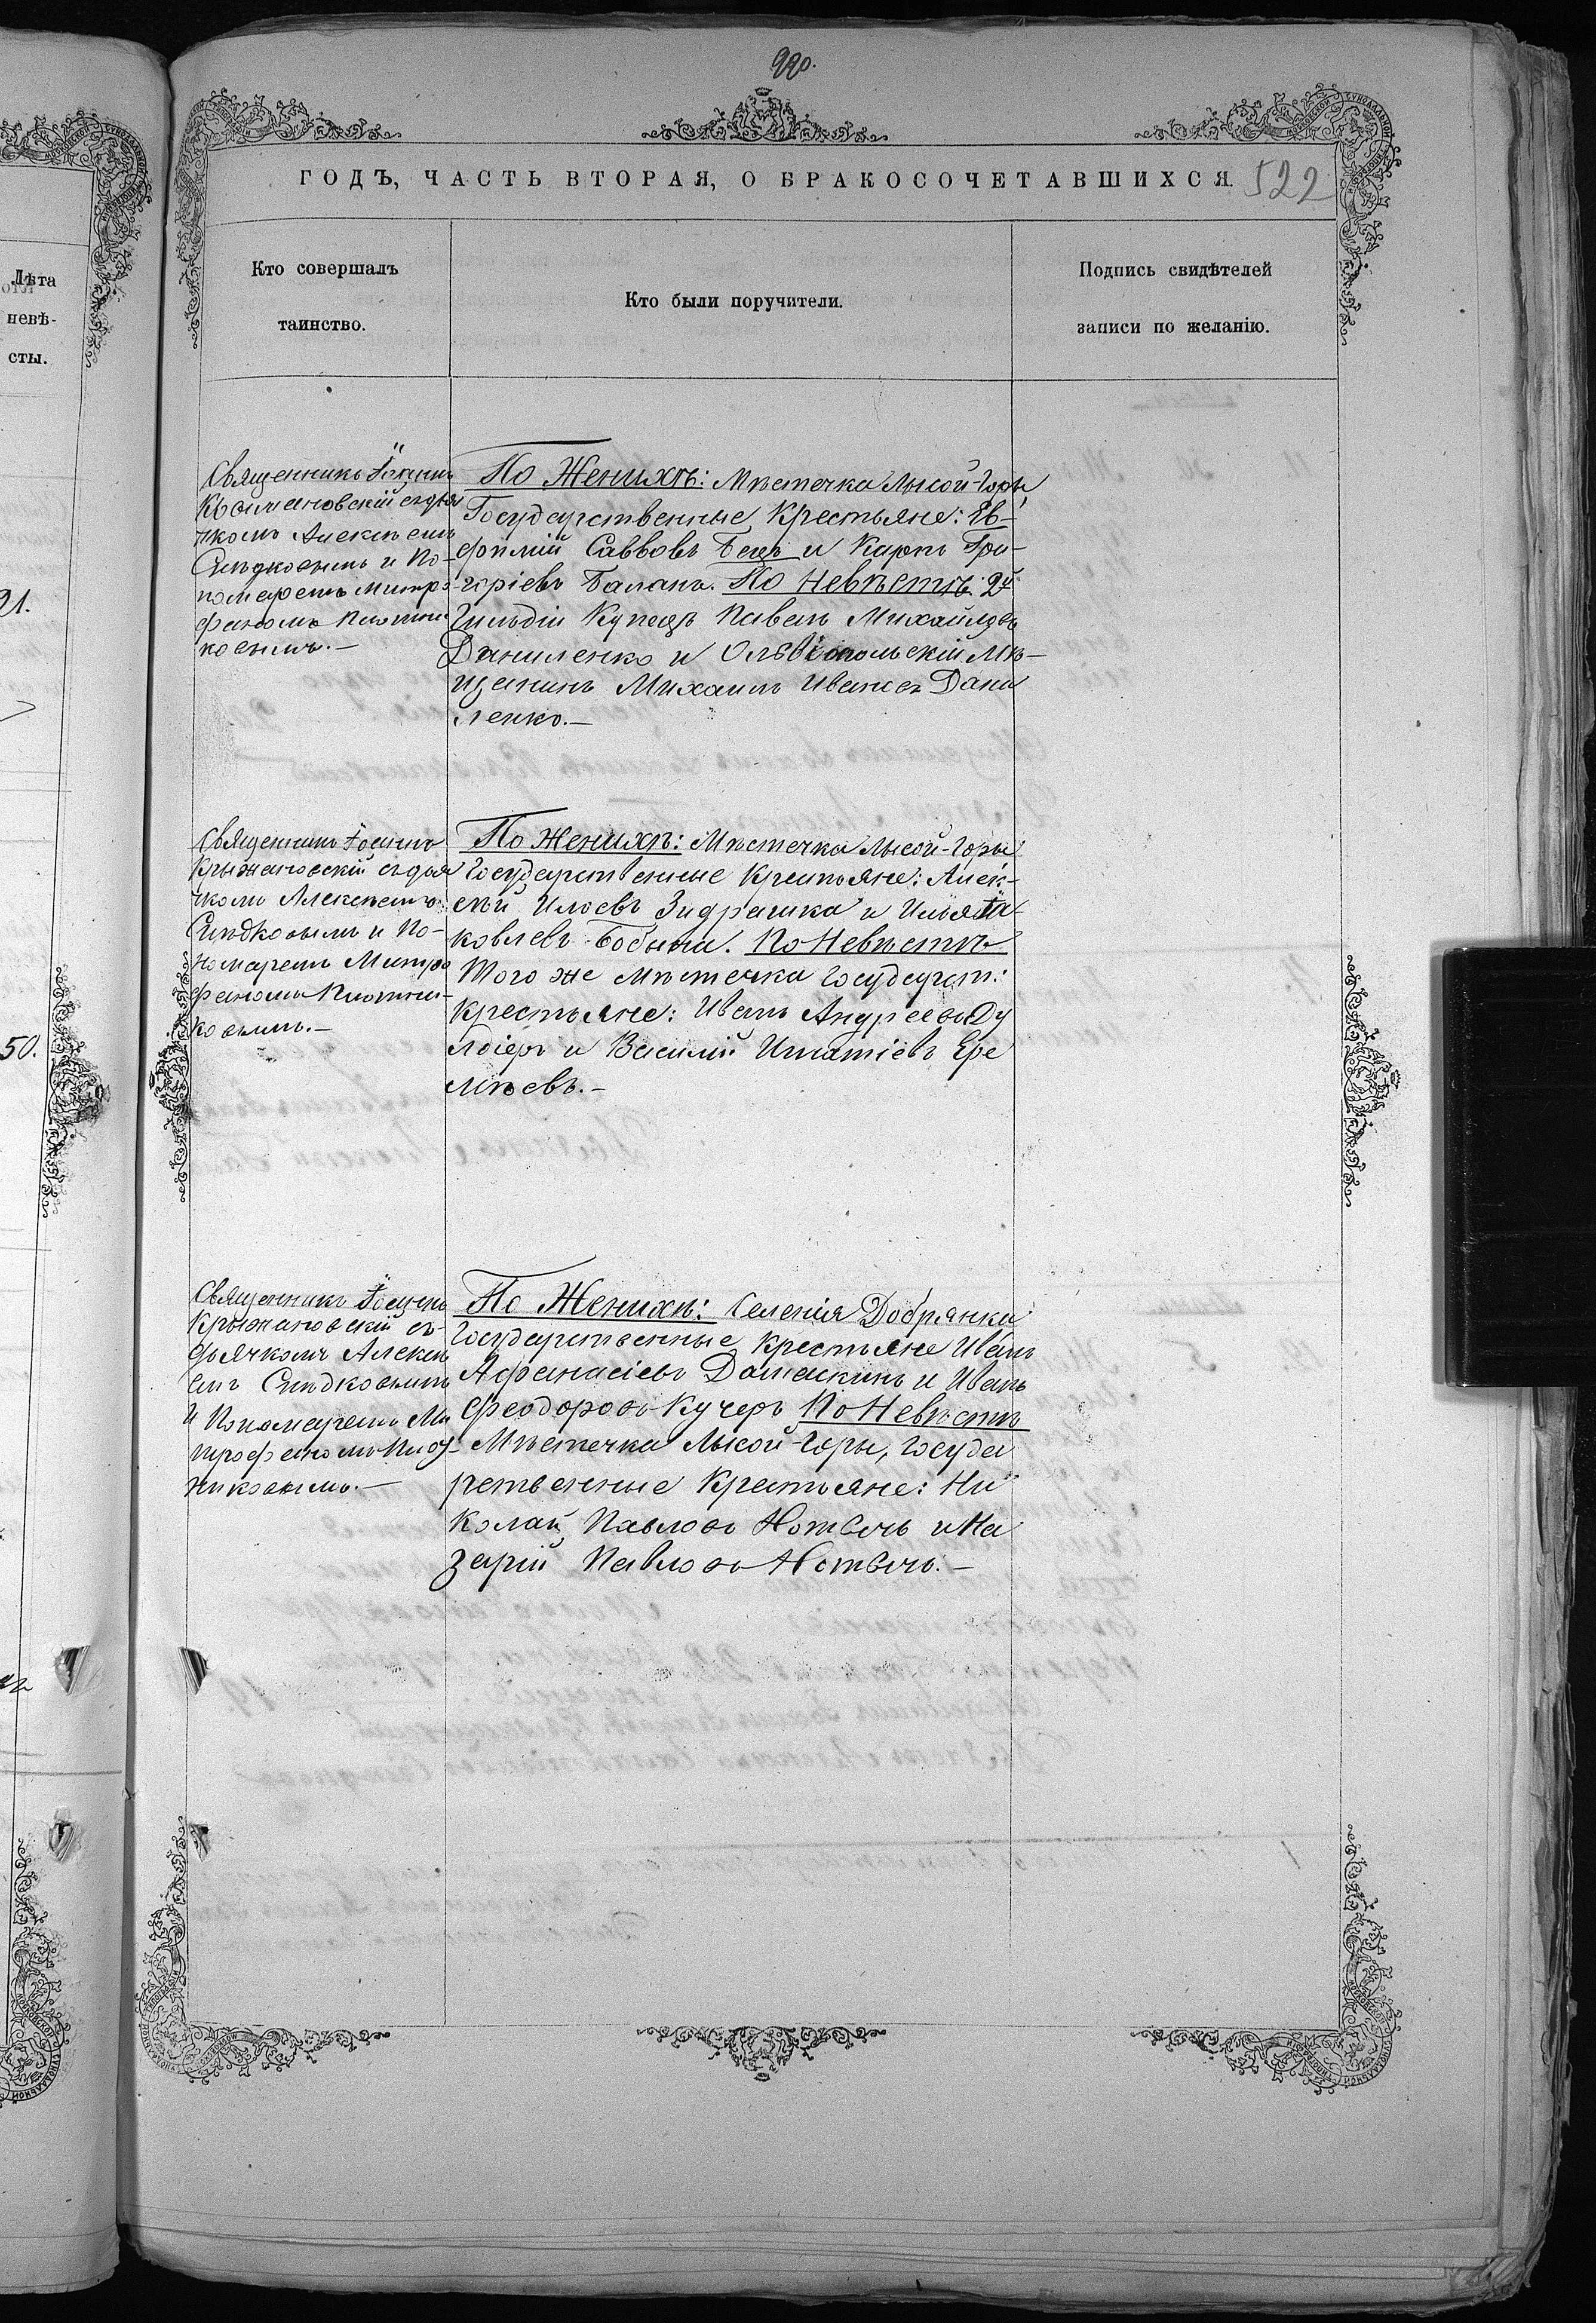 990.
ГОДЪ, ЧАСТЬ ВТОРАЯ, О БРАКОСОЧЕТАВШИХСЯ. 522
Лѣта
невѣ-
сты.
Кто совершалъ
таинство.
Кто были поручители.
Подпись свидѣтелей
записи по желанію.
91.
50.
Священникъ Іоаннъ
Крыжановскій съ дья
чкомъ Алексѣемъ
Сѣдковымъ и По-
номаремъ Митро
фаномъ Плотни
ковымъ.—
По Женихѣ: Мѣстечка Лысой-Горы
Государственные Крестьяне: Ев-
фимій Саввовъ и Карпъ Гри-
горіевъ Баланъ. По Невѣстѣ: 2й
Гильдіи Купецъ Павелъ Михайловъ
Даниленко и Ольвіопольскій Мѣ-
щанинъ Михаилъ Ивановъ Дани
ленко.—
Священникъ Іоаннъ
Крыжановскій съ дья
чкомъ Алексѣемъ
Сѣдковымъ и По-
номаремъ Митро
фаномъ Плотни-
ковымъ.—
По Женихѣ: Мѣстечка Лысой-Горы
Государственные Крестьяне: Алек-
сѣй Иловъ Зидрашка и Илья Іа-
ковлевъ Бобына. По Невѣстѣ
Того же мѣстечка Государст:
Крестьяне: Иванъ Андреевъ Ду
логіеръ и Василій Игнатіевъ Ере
мѣевъ.—
Священникъ Іоаннъ
Крыжановскій съ
дьячкомъ Алексѣ
емъ Сѣдковымъ
и Пономаремъ Ми
трофаномъ Плот
никовымъ.—
По Женихѣ: Селенія Добрянки
Государственные Крестьяне Иванъ
Афанасіевъ Домашкинъ и Иванъ
Феодоровъ Кучеръ По Невѣстѣ
Мѣстечка Лысой-Горы, Госуда
рственные Крестьяне: Ни
колай Павловъ и На
зарій Павловъ